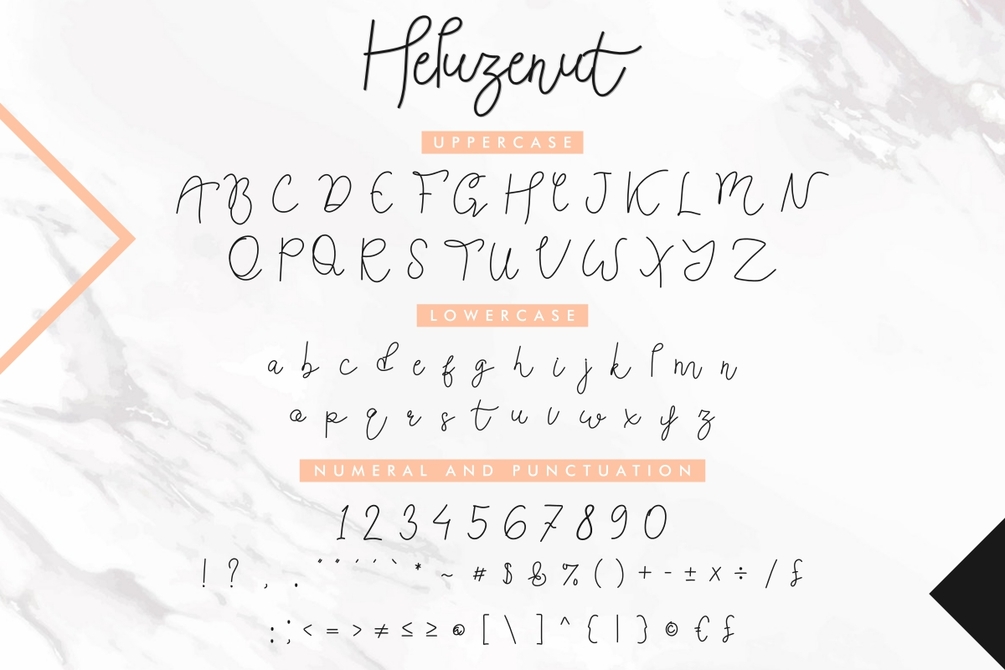 Heluzenut
UPPERCASE
A B C D E F G H I J K L M N
O P Q R S T U V W X Y Z
LOWERCASE
a b c d e f g h i j k l m n
o p q r s t u v w x y z
NUMERAL AND PUNCTUATION
1 2 3 4 5 6 7 8 9 0
! ? , . " " ' ' ` * ~ # $ & % ( ) + - ± × ÷ / £
: ; < = > ≠ ≤ ≥ @ [ \ ] ^ { | } © € £